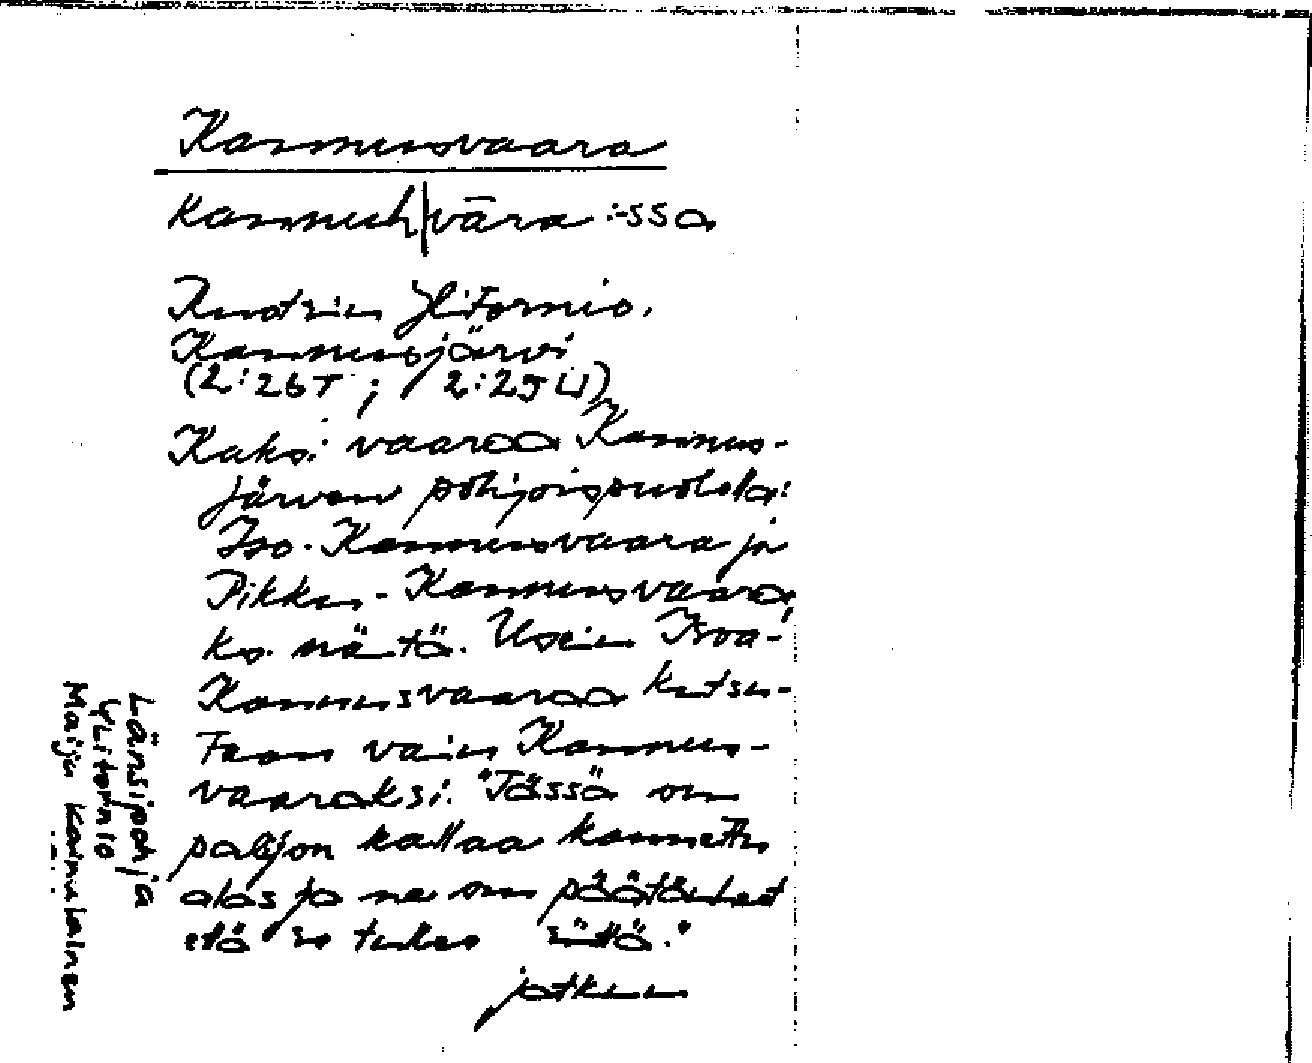 Kannusvaara
kannuh|vāra :-ssa
Ruotsin Ylitornio.
Kannusjärvi
(2:26T ; 2:25U)
Kaksi vaaraa Kannus-
järven pohjoispuolella:
Iso-Kannusvaara ja
Pikku-Kannusvaara,
ks. näitä. Usein Isoa-
Kannusvaaraa kutsu-
taan vain Kannus-
vaaraksi. "Tässä on
paljon kallaa kannettu
alas ja ne on päätänhet
että se tulee siittä."
jatkuu
Länsipohja
Ylitornio
Maija Kainulainen